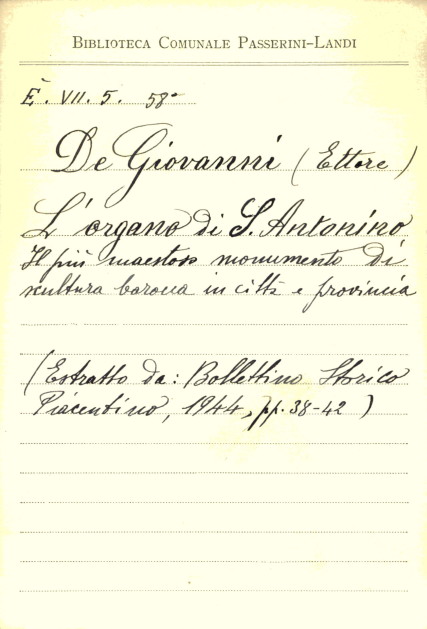 BIBLIOTECA COMUNALE PASSERINI-LANDI
E. VII. 5. 58°
De Giovanni (Ettore)
L'organo di S. Antonino
Il più maestoso monumento di
scultura barocca in città e provincia
(Estratto da: Bollettino Storico
Piacentino, 1944, pp. 38-42)